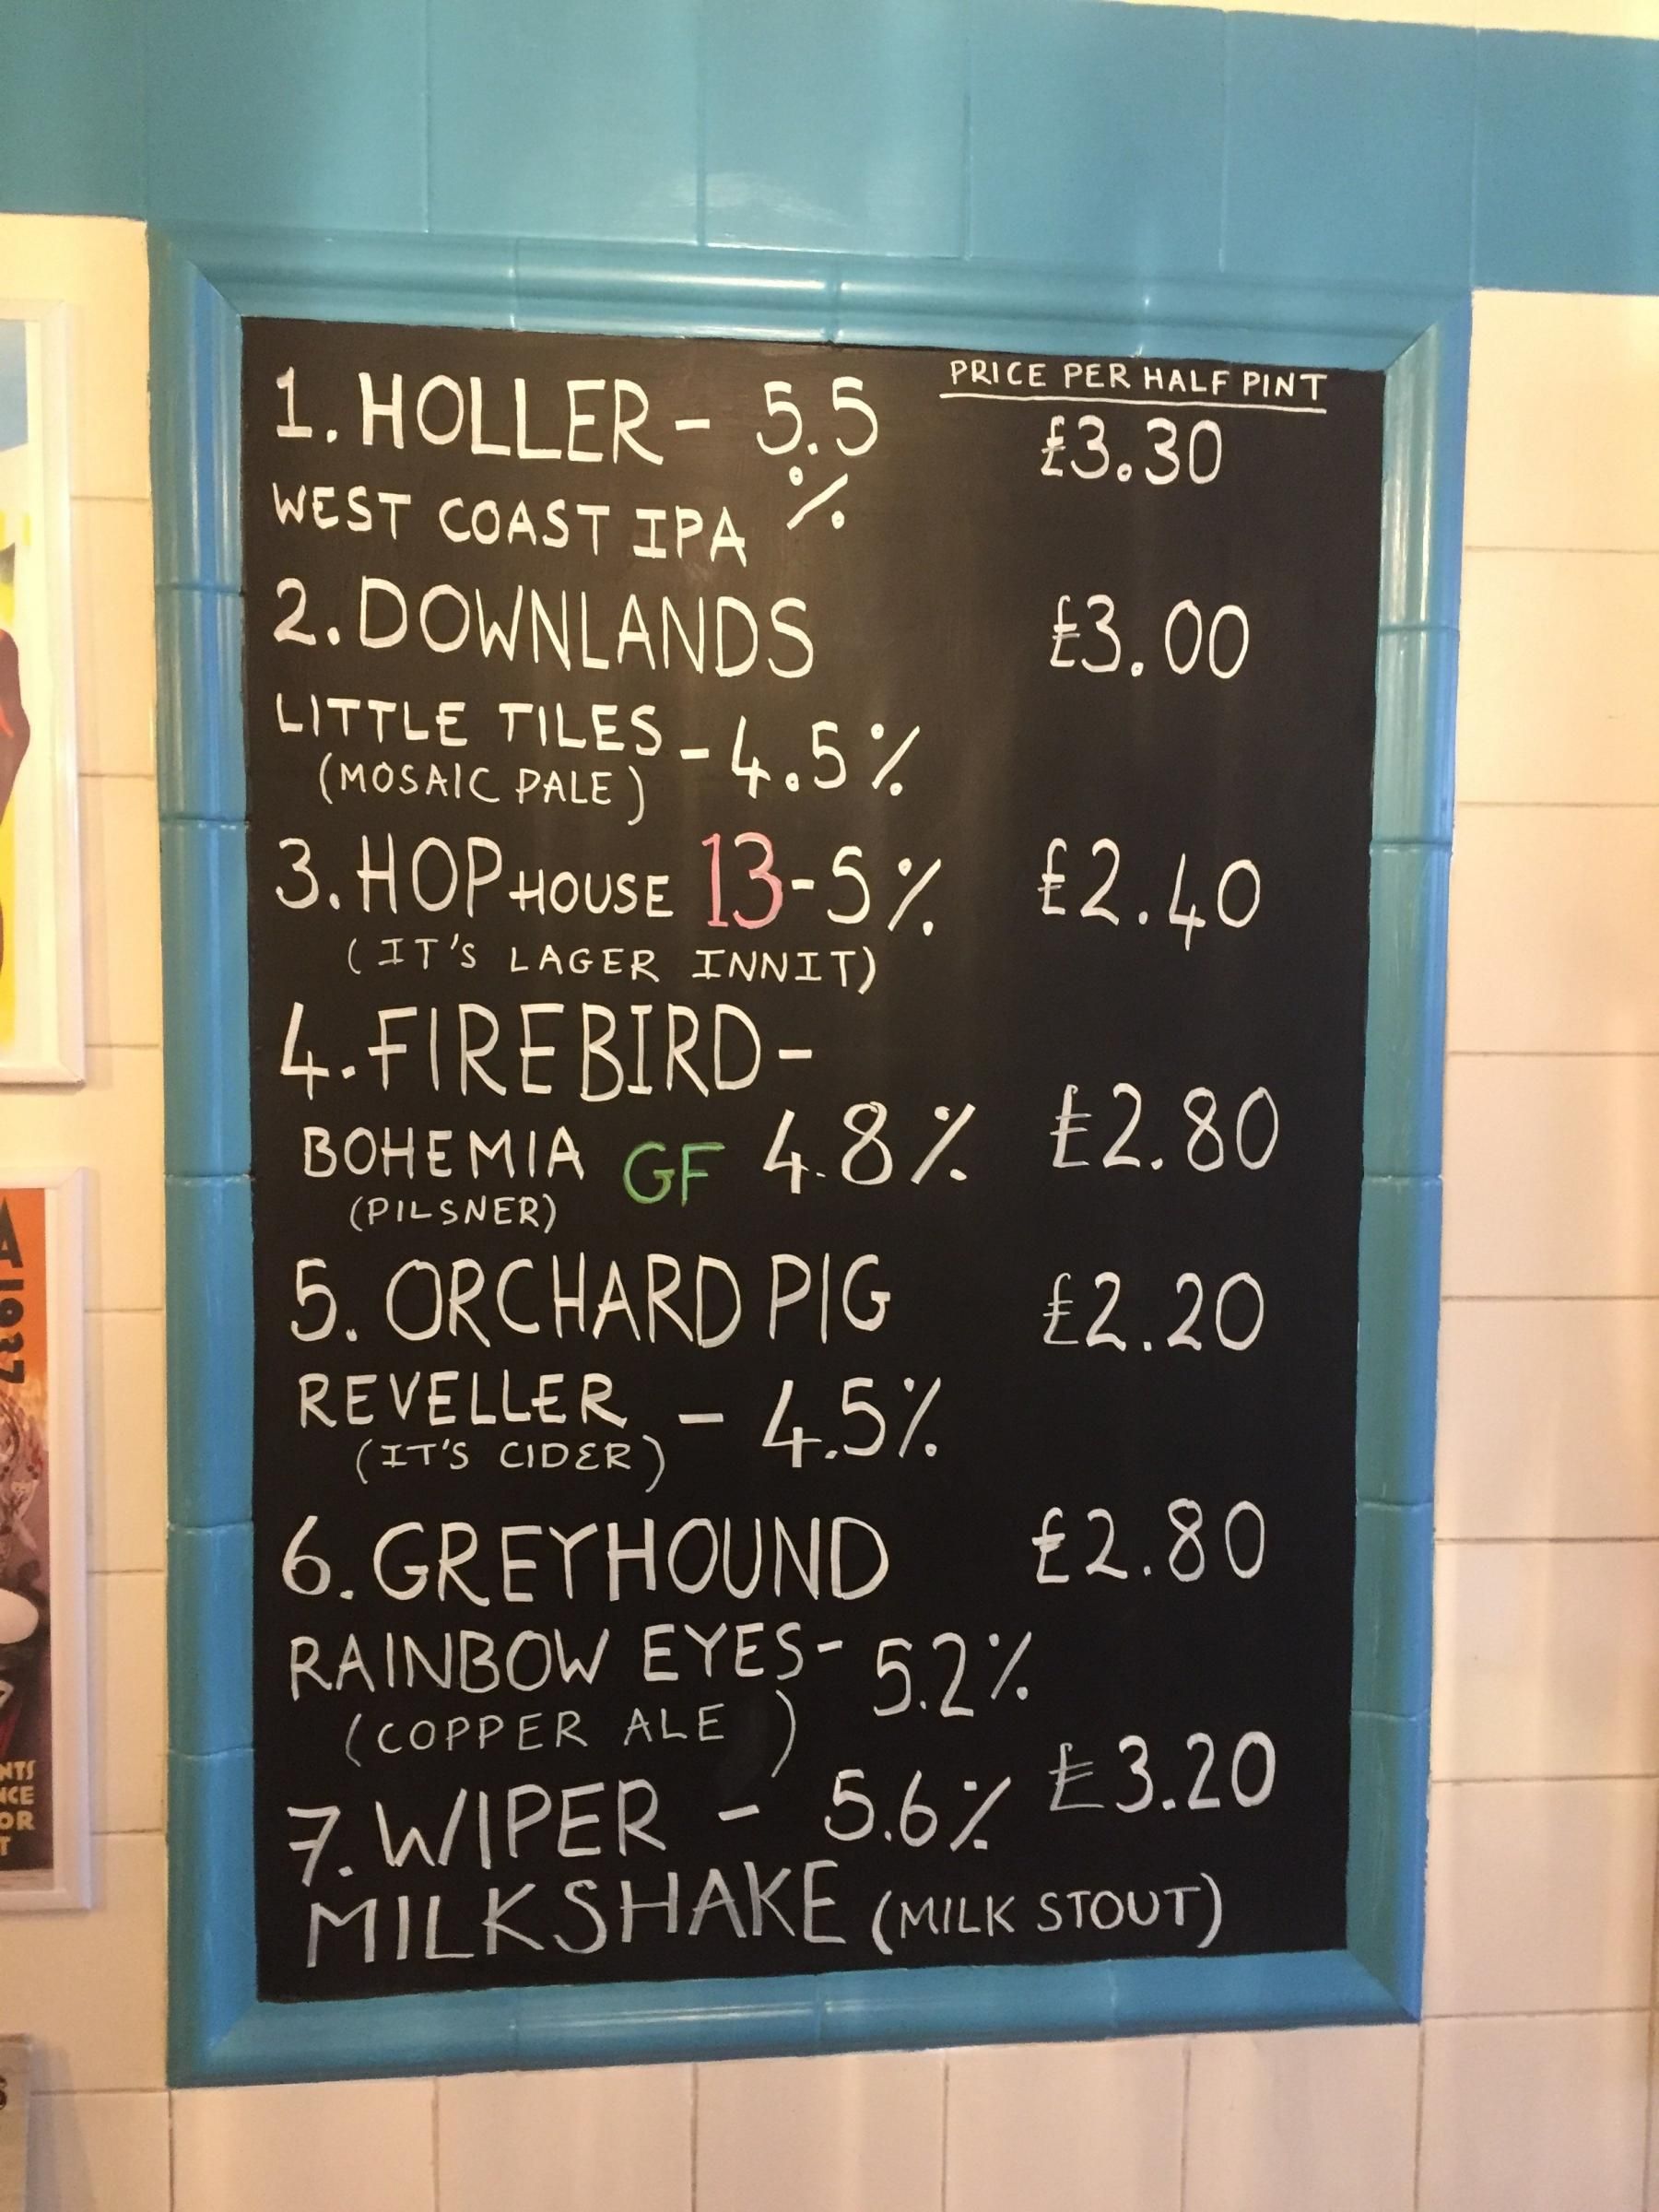 PRICE PER HALF PINT
1. HOLLER - 5.5 % £3.30
WEST COAST IPA
2. DOWNLANDS £3.00
LITTLE TILES - 4.5%
(MOSAIC PALE)
3. HOP HOUSE 13 - 5% £2.40
(IT'S LAGER INNIT)
4. FIREBIRD -
BOHEMIA GF 4.8% £2.80
(PILSNER)
5. ORCHARD PIG £2.20
REVELLER - 4.5%
(IT'S CIDER)
6. GREYHOUND £2.80
RAINBOW EYES - 5.2%
(COPPER ALE)
7. WIPER - 5.6% £3.20
MILKSHAKE (MILK STOUT)